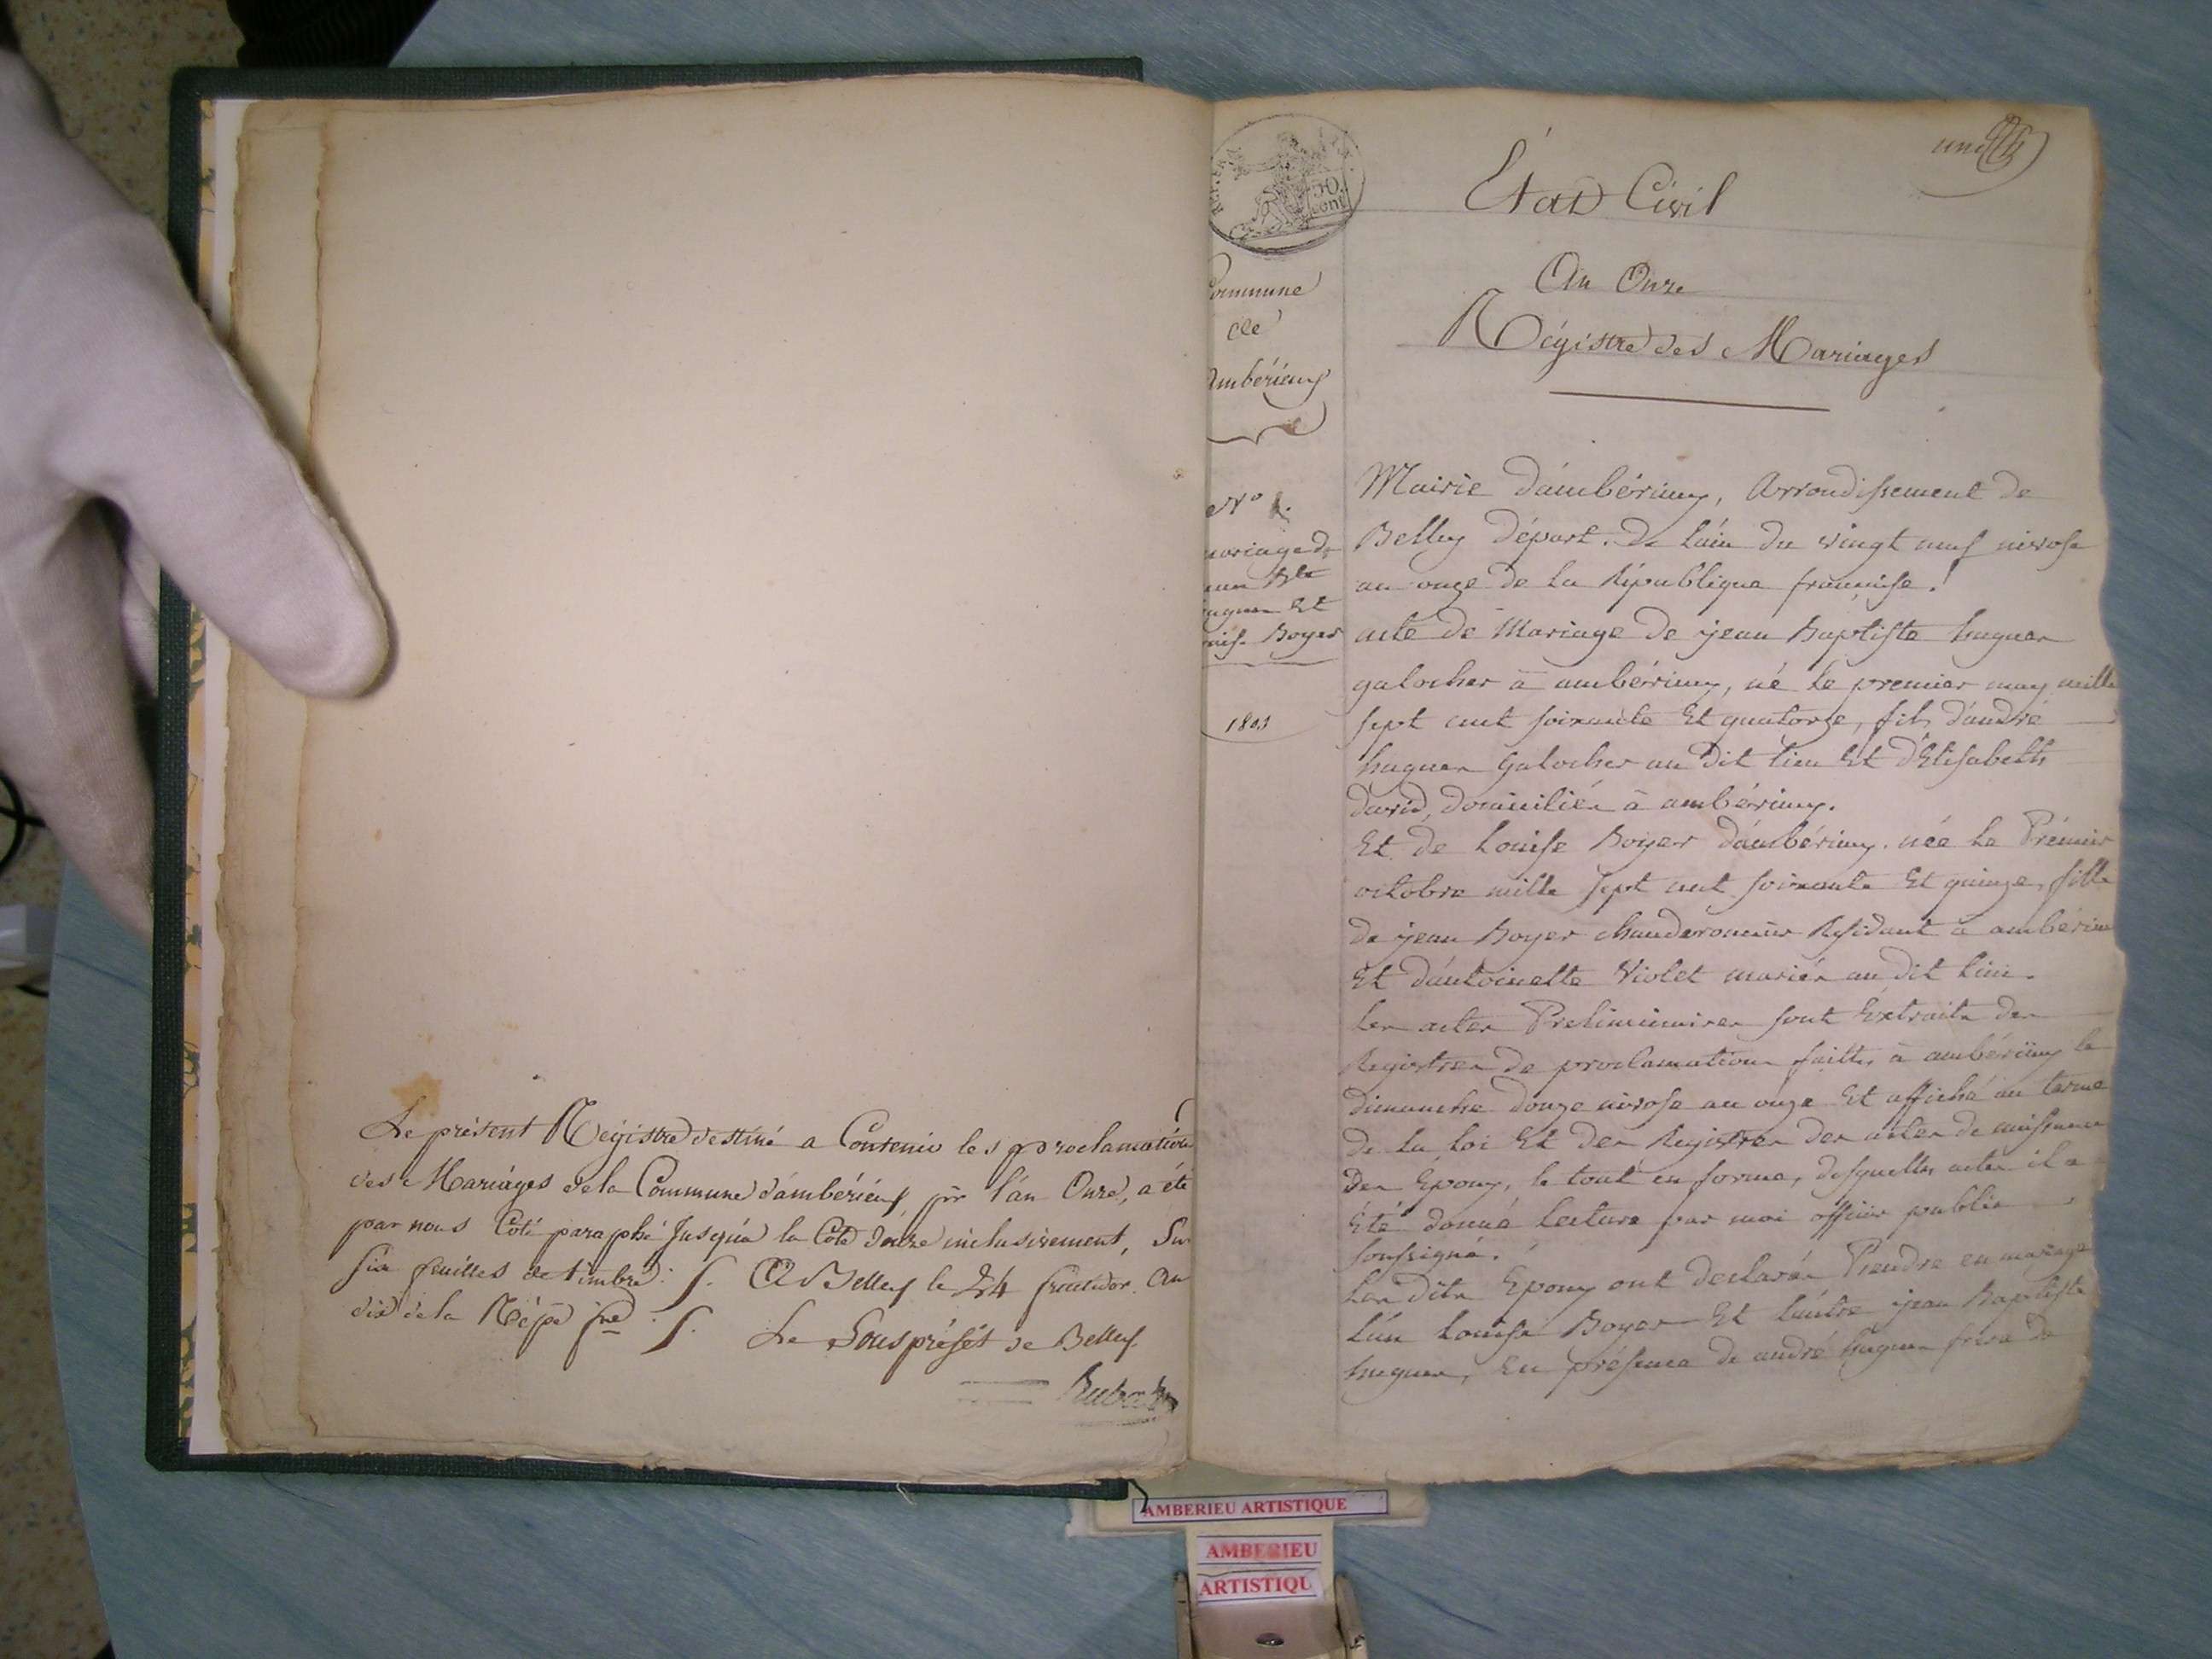 Le présent Régistre destiné a Contenir les proclamations
des Mariages de la Commune d'ambérieux pr l'an Onze, a été
par nous Coté paraphé Jusqu'a la Cote douze inclusivement, Sur
six feuilles de timbre. A Belley le 24 fructidor. An
dix de la Rép. fre
Le Sous préfét de Belley
50
cent
Commune
de
ambérieux
No 1.
mariage de
Bte
huguer Et
Boyer
1803
une
État Civil
An Onze
Régistre des Mariages
Mairie d'ambérieux, Arrondissement de
Belley Départ. De Lain du vingt neuf nivose
an onze de la République française.
acte de Mariage de jean Baptiste huguer
galocher à ambérieux, né le premier may mille
sept cent soixante Et quatorze, fils d'andré
huguer Galocher au Dit lieu Et d'Elisabeth
david, domiciliés à ambérieux.
Et de Louise Boyer d'ambérieux. née Le Prémier
octobre mille sept cent soixante Et quinze, fille
de jean Boyer chauderonnier Residant a ambérieux
Et d'antoinette Violet mariés au dit lieu.
les actes Preliminaires sont Extraits des
Registres de proclamations faittes à ambérieux le
dimanche douze nivose an onze Et affiché au terme
de la loi Et des Registres des actes de naissance
des Epoux, le tout en forme, desquelles actes il a
Eté donné lecture par moi officier public
soussigné.
Les dits Epoux ont declarés Prendre en mariage
L'un Louise Boyer Et lautre jean Baptiste
huguer, En présence de andré huguer frere de
AMBERIEU ARTISTIQUE
AMBERIEU
ARTISTIQU